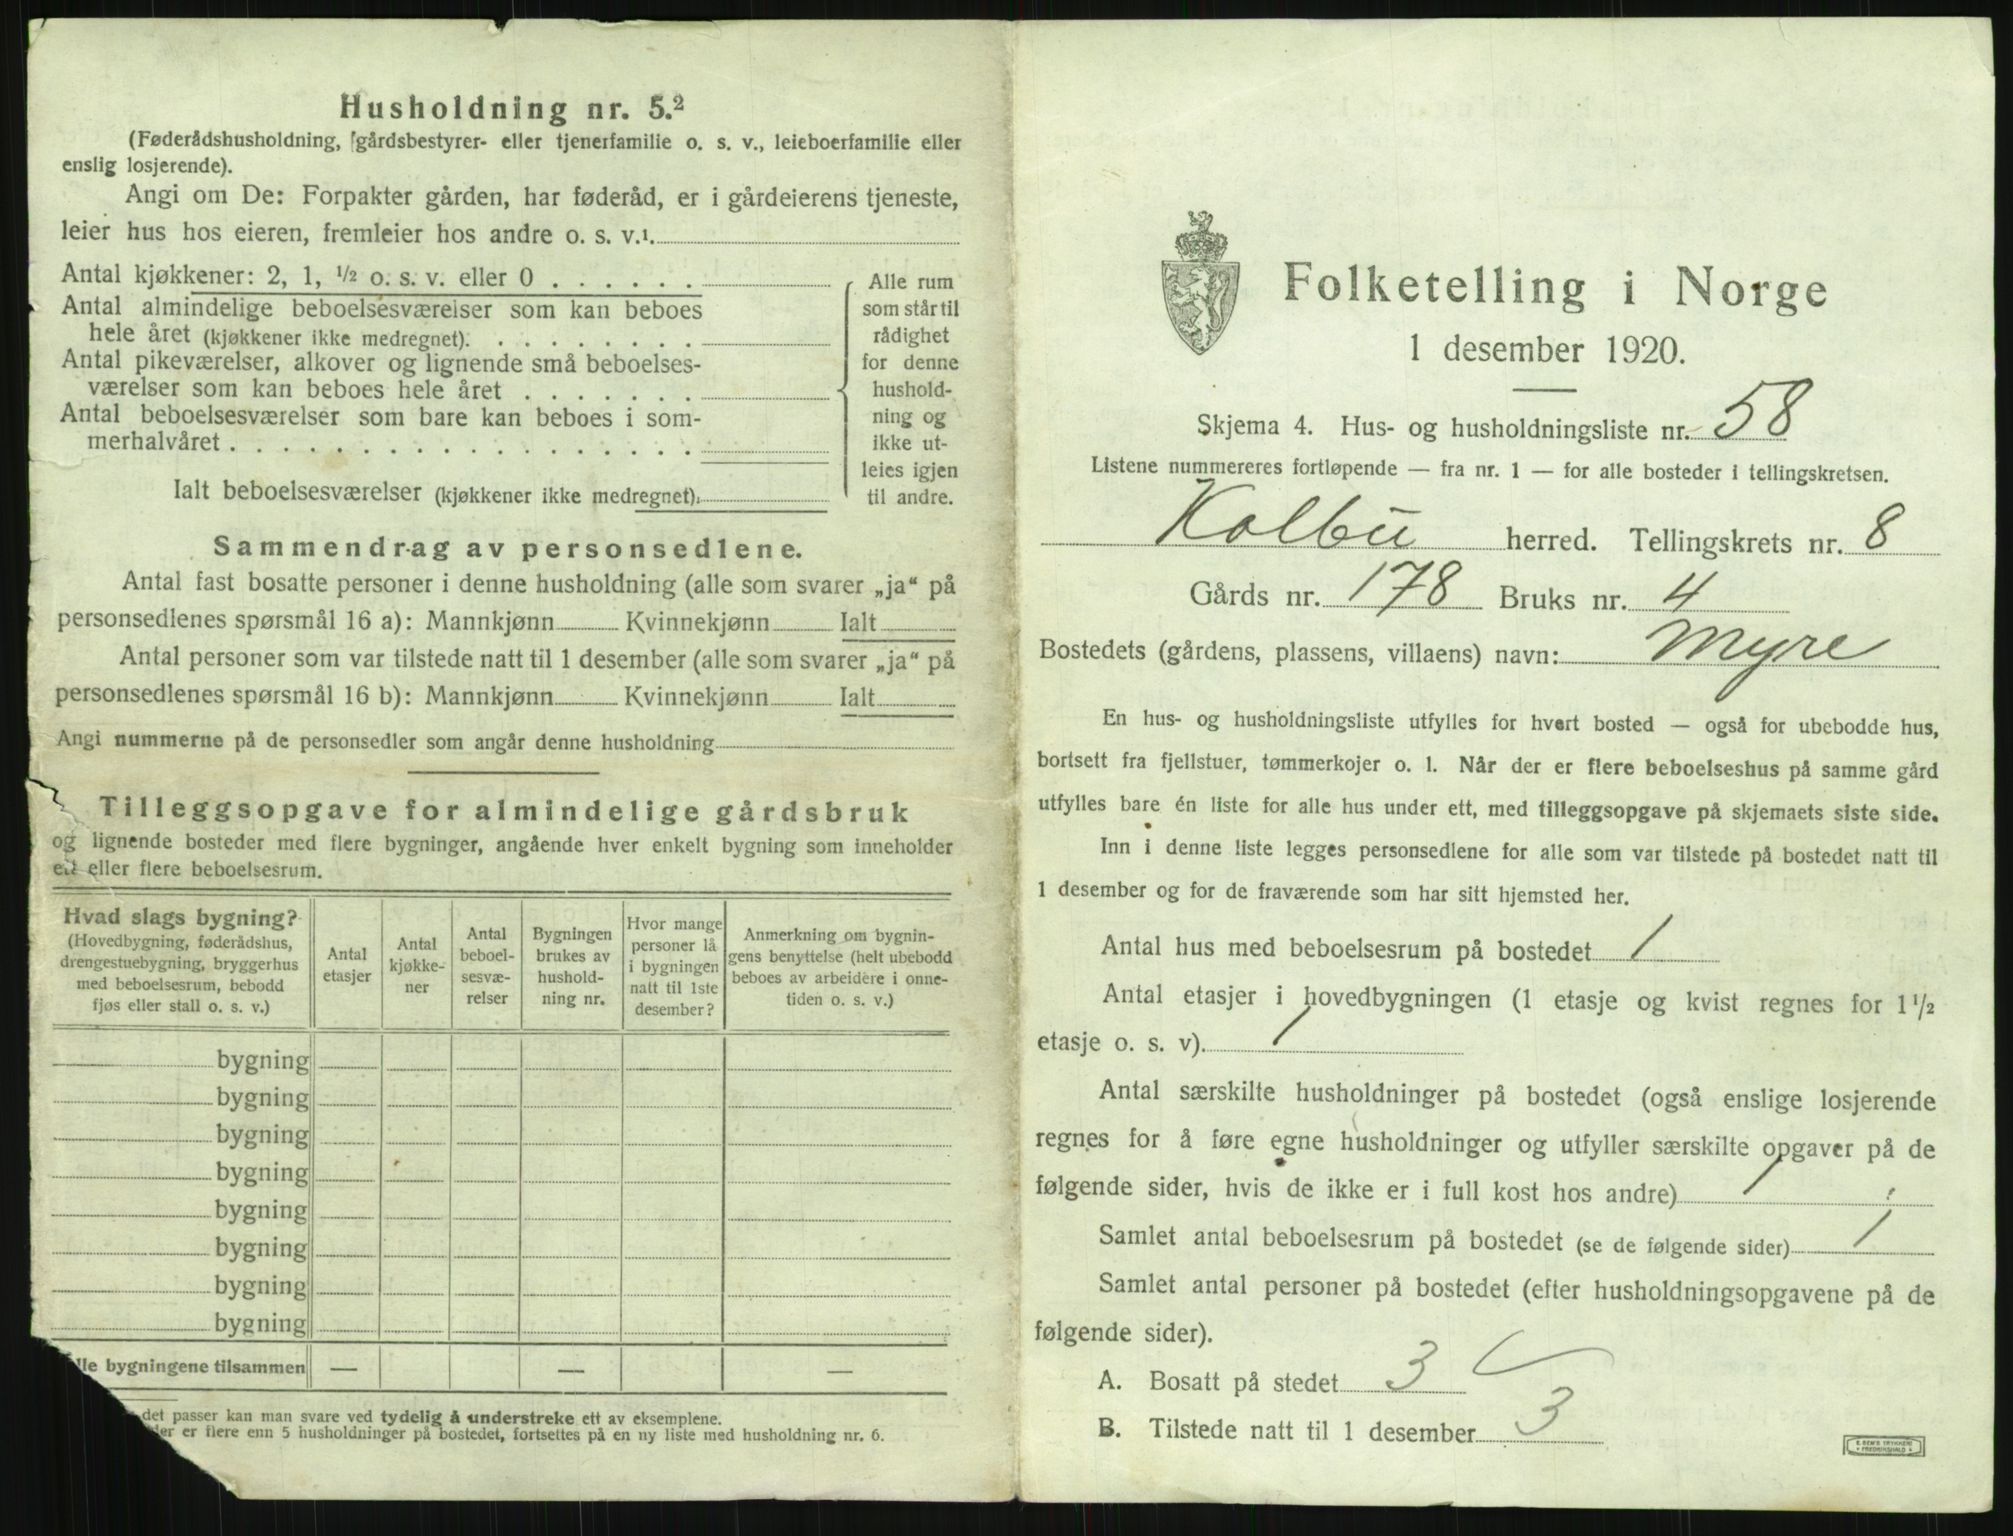 Husholdning nr. 5.²
(Føderådshusholdning, gårdsbestyrer- eller tjenerfamilie o. s. v., leieboerfamilie eller
enslig losjerende).
Angi om De: Forpakter gården, har føderåd, er i gårdeierens tjeneste,
leier hus hos eieren, fremleier hos andre o. s. v.¹.
Antal kjøkkener: 2, 1, ½ o. s. v. eller 0 . . . . . .
Antal almindelige beboelsesværelser som kan beboes
hele året (kjøkkener ikke medregnet). . . . . . . . .
Antal pikeværelser, alkover og lignende små beboelses-
værelser som kan beboes hele året . . . . . . .
Antal beboelsesværelser som bare kan beboes i som-
merhalvåret . . . . . . . . . . . . . . . . . .
Ialt beboelsesværelser (kjøkkener ikke medregnet).
Alle rum
som står til
rådighet
for denne
hushold-
ning og
ikke ut-
leies igjen
til andre.
Sammendrag av personsedlene.
Antal fast bosatte personer i denne husholdning (alle som svarer „ja“ på
personsedlenes spørsmål 16 a): Mannkjønn Kvinnekjønn Ialt
Antal personer som var tilstede natt til 1 desember (alle som svarer „ja“ på
personsedlenes spørsmål 16 b): Mannkjønn Kvinnekjønn Ialt
Angi nummerne på de personsedler som angår denne husholdning
Tilleggsopgave for almindelige gårdsbruk
og lignende bosteder med flere bygninger, angående hver enkelt bygning som inneholder
ett eller flere beboelsesrum.
Hvad slags bygning?
(Hovedbygning, føderådshus,
drengestuebygning, bryggerhus
med beboelsesrum, bebodd
fjøs eller stall o. s. v.)
Antal
etasjer
Antal
kjøkke-
ner
Antal
beboel-
sesvæ-
relser
Bygningen
brukes av
hushold-
ning nr.
Hvor mange
personer lå
i bygningen
natt til 1ste
desember?
Anmerkning om bygnin-
gens benyttelse (helt ubebodd
beboes av arbeidere i onne-
tiden o. s. v.)
bygning
bygning
bygning
bygning
bygning
bygning
bygning
bygning
lle bygningene tilsammen — — —
det passer kan man svare ved tydelig å understreke ett av eksemplene.
der er flere enn 5 husholdninger på bostedet, fortsettes på en ny liste med husholdning nr. 6.
Folketelling i Norge
1 desember 1920.
Skjema 4. Hus- og husholdningsliste nr. 58
Listene nummereres fortløpende — fra nr. 1 — for alle bosteder i tellingskretsen.
Kolbu herred. Tellingskrets nr. 8
Gårds nr. 178 Bruks nr. 4
Bostedets (gårdens, plassens, villaens) navn: Myre
En hus- og husholdningsliste utfylles for hvert bosted — også for ubebodde hus,
bortsett fra fjellstuer, tømmerkojer o. l. Når der er flere beboelseshus på samme gård
utfylles bare én liste for alle hus under ett, med tilleggsopgave på skjemaets siste side.
Inn i denne liste legges personsedlene for alle som var tilstede på bostedet natt til
1 desember og for de fraværende som har sitt hjemsted her.
Antal hus med beboelsesrum på bostedet 1
Antal etasjer i hovedbygningen (1 etasje og kvist regnes for 1 ½
etasje o. s. v). 1
Antal særskilte husholdninger på bostedet (også enslige losjerende
regnes for å føre egne husholdninger og utfyller særskilte opgaver på de
følgende sider, hvis de ikke er i full kost hos andre) 1
Samlet antal beboelsesrum på bostedet (se de følgende sider) 1
Samlet antal personer på bostedet (efter husholdningsopgavene på de
følgende sider).
A. Bosatt på stedet 3
B. Tilstede natt til 1 desember 3